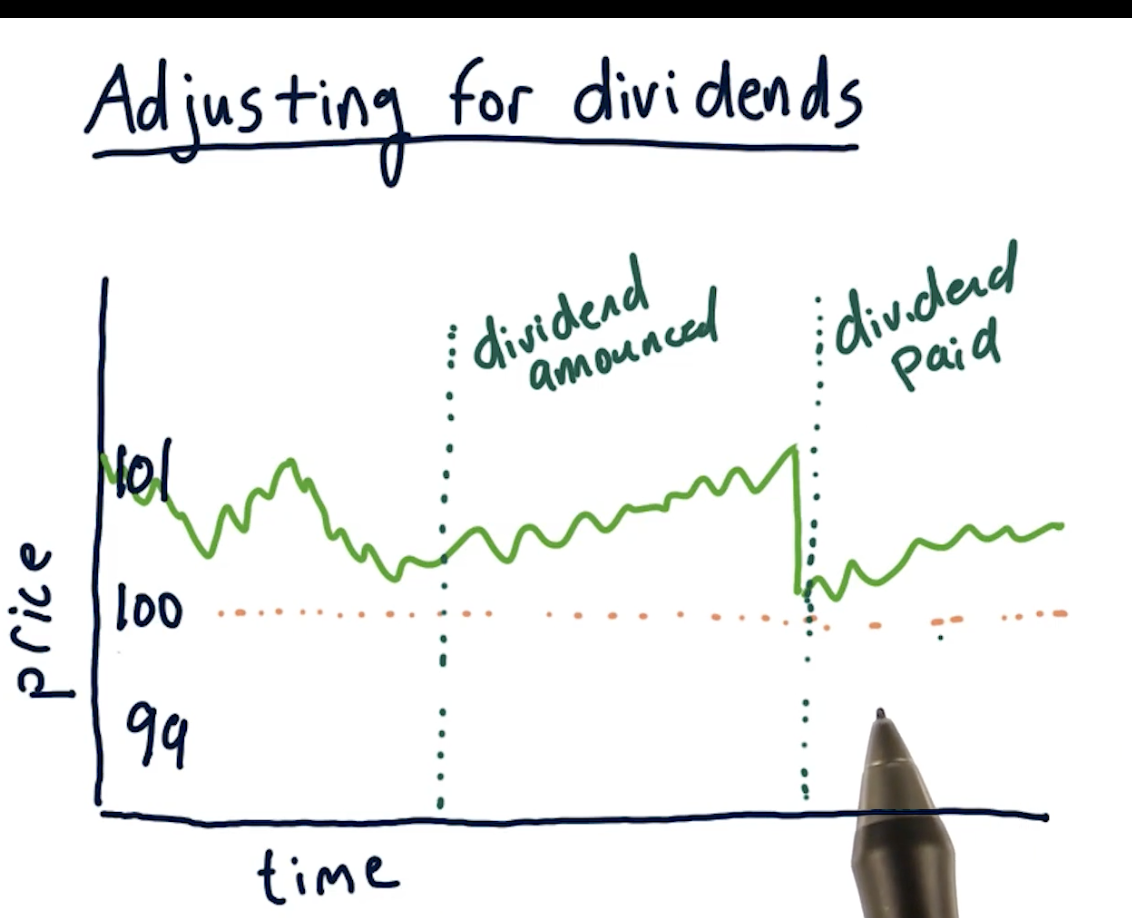 Adjusting for dividends
dividend
announced
dividend
paid
101
100
99
price
time